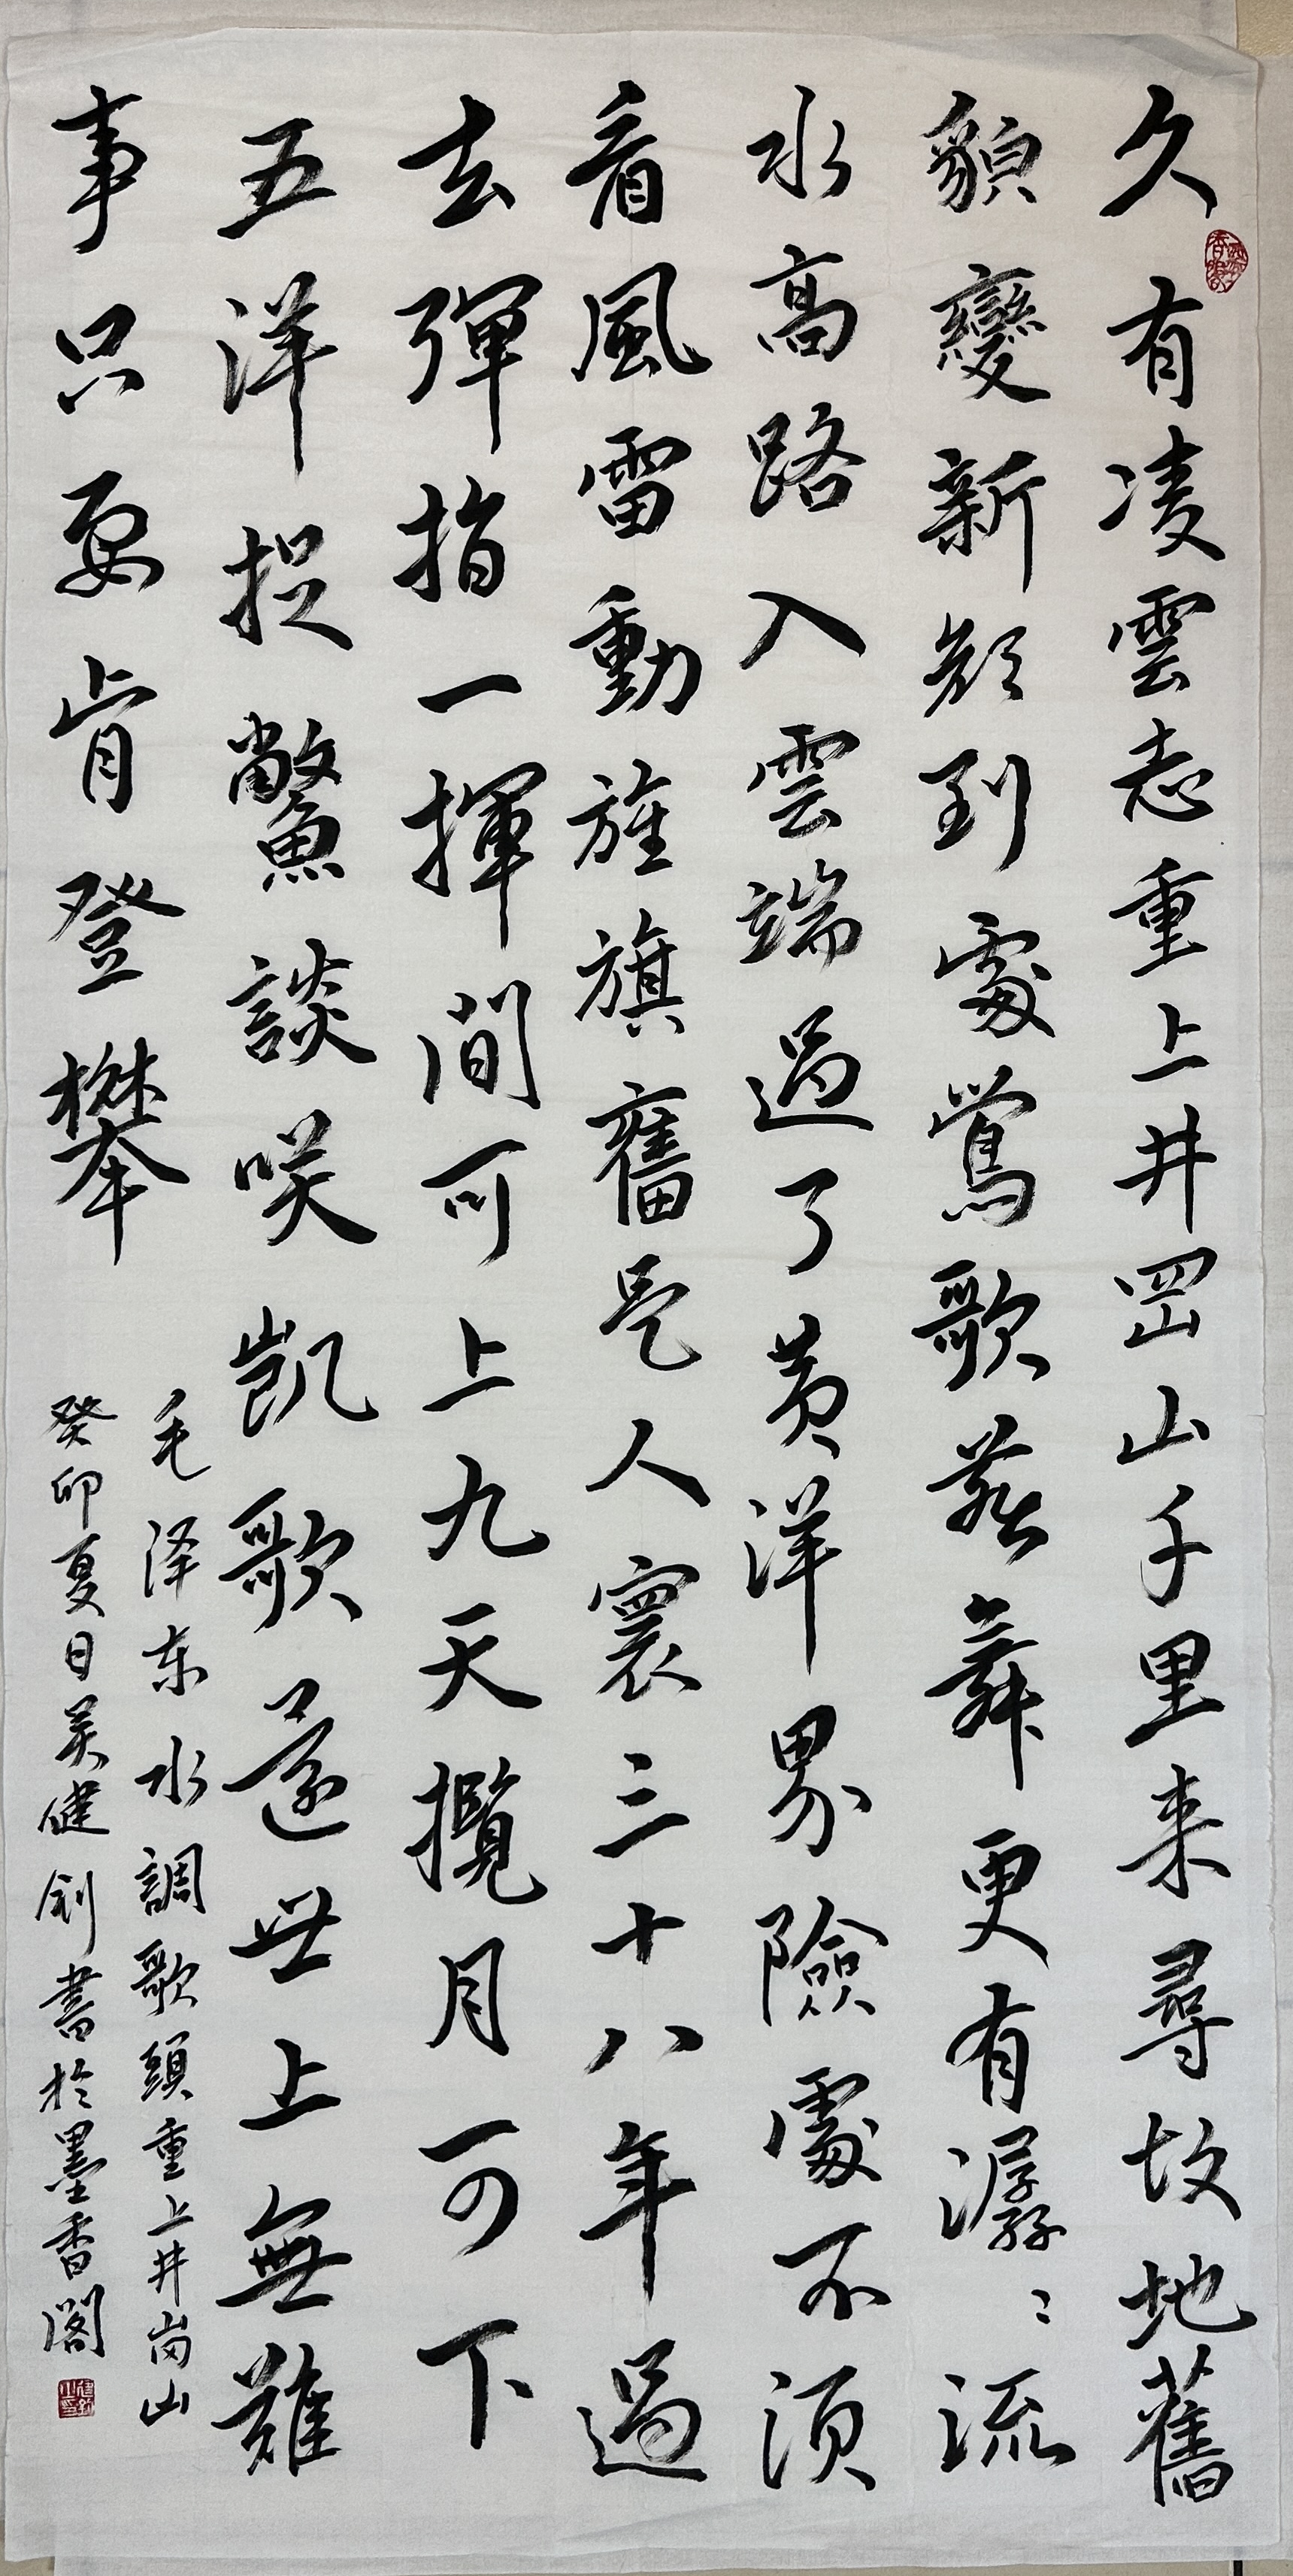 久有凌雲志重上井岡山千里来尋故地舊
貌變新顔到處鶯歌燕舞更有潺〻流
水高路入雲端過了黄洋界險處不須
看風雷動旌旗奮是人寰三十八年過
去彈指一揮間可上九天攬月可下
五洋捉鱉談咲凱歌還世上無難
事只要肯登攀
毛泽东水調歌頭重上井岗山
癸卯夏日吴健釗書於墨香閣